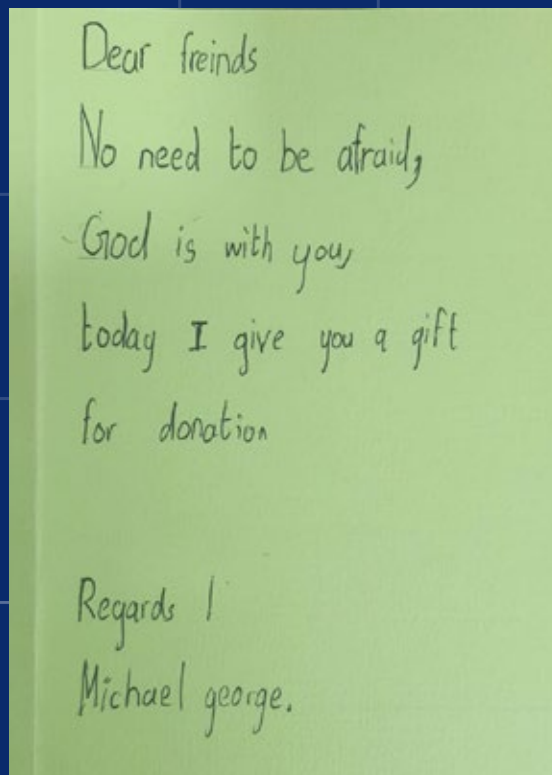 Dear freinds
No need to be afraid,
God is with you,
today I give you a gift
for donation
Regards !
Michael george.